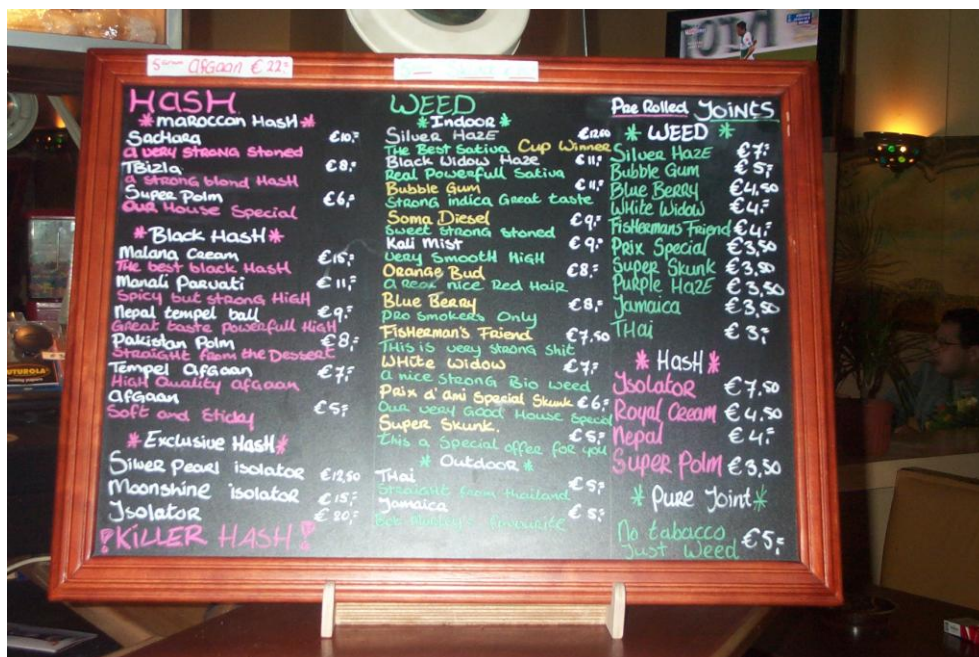 5 gram afgaan € 22,-
Hash
* Maroccan Hash *
Sachara €10,-
a very strong stoned
Tbizla €8,-
a strong blond Hash
Super Polm €6,-
our House Special
* Black Hash *
Malana Cream €15,-
The best black Hash
Manali Parvati €11,-
Spicy but strong High
Nepal tempel ball €9,-
Great taste powerfull High
Pakistan Polm €8,-
Straight from the Dessert
Tempel afgaan €7,-
High Quality afgaan
afgaan
Soft and Sticky €5,-
* Exclusive Hash *
Silver Pearl isolator €12,50
Moonshine isolator €15,-
Isolator
!KILLER HASH!
WEED
* Indoor *
Silver Haze €12,00
The Best Sativa Cup Winner
Black Widow Haze €11,-
Real Powerfull Sativa
Bubble Gum €11,-
Strong indica Great taste
Soma Diesel €9,-
Sweet strong stoned
Kali Mist €9,-
very smooth High
Orange Bud €8,-
a real nice Red Hair
Blue Berry €8,-
pro smokers Only
Fisherman's Friend €7,50
This is very strong shit
White Widow €7,-
a nice strong Bio weed
Prix d'ami Special Skunk €6,-
Our very Good House Special
Super Skunk. €5,-
this a special offer for you
* Outdoor *
Thai €5,-
Straight from thailand
Jamaica €5,-
Bob Marley's favourite
Pre Rolled Joints
* WEED *
Silver Haze €7,-
Bubble Gum €5,-
Blue Berry €4,50
White Widow €4,-
Fishermans Friend €4,-
Prix Special €3,50
Super Skunk €3,50
Purple Haze €3,50
Jamaica €3,50
Thai €3,-
* Hash *
Isolator €7,50
Royal Cream €4,50
Nepal €4,-
Super Polm €3,50
* Pure Joint *
No tabacco €5,-
Just Weed